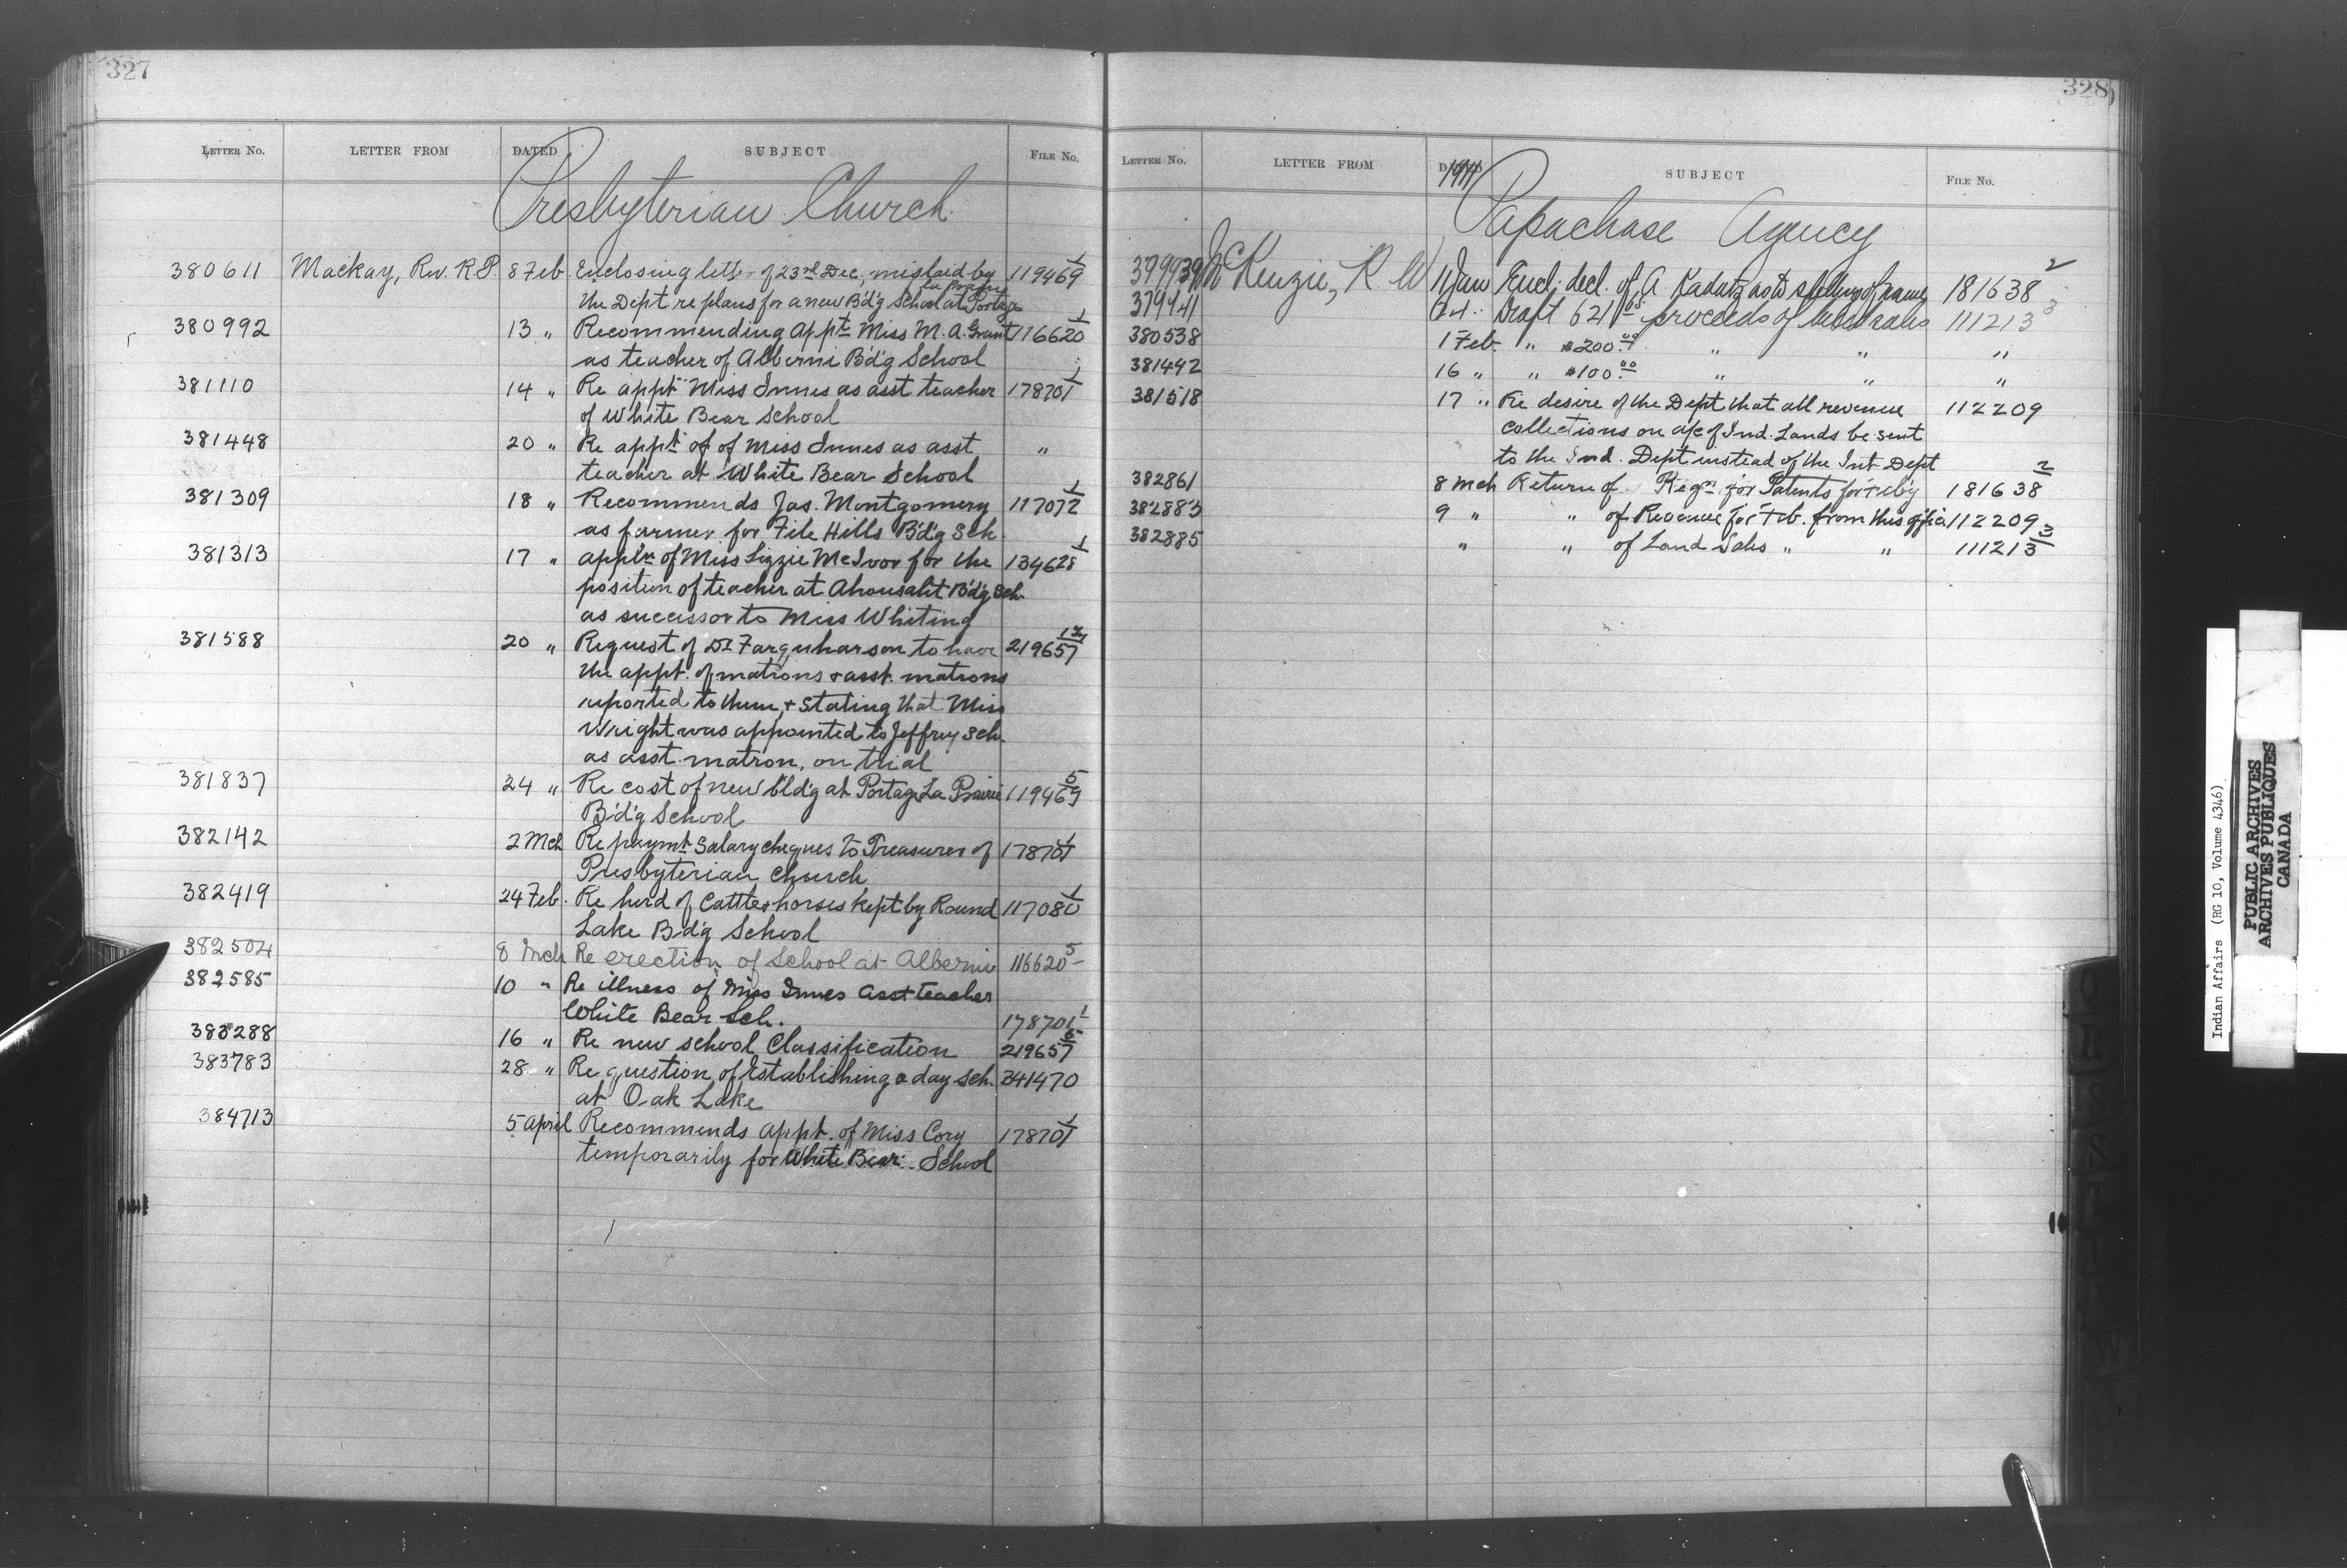 327
LETTER NO. LETTER FROM DATED SUBJECT FILE NO.
Presbyterian Church
380611 Mackay, Rev. R.P. 8 Feb. Enclosing letter of 23rd Dec, mislaid by 119469 1
La Prairie
the Dept re plans for a new B'd'g School at Portage
380992 13 " Recommending appt Miss M. A. Grant 116620 1
as teacher of Alberni B'd'g School
381110 14 " Re appt Miss Innes as asst teacher 178701 1
of White Bear School
381448 20 " Re appt of of Miss Innes as asst "
teacher at White Bear School
381309 18 " Recommends Jas. Montgomery 117072 1
as farmer for File Hills B'd'g Sch
381313 17 " appl'n of Miss Lizzie McIvor for the 134628 1
position of teacher at Ahousaht B'd'g Sch.
as successor to Miss Whiting
381588 20 " Request of Dr Farquharson to have 219657
the appt. of matrons & asst. matrons
reported to them, & stating that Miss
Wright was appointed to Jeffrey Sch.
as asst matron, on trial
381837 24 " Re cost of new bld'g at Portage La Prairie 119469 5
B'd'g School
382142 2 Mch Re paymt salary cheques to Treasurer of 178701 1
Presbyterian Church
382419 24 Feb. Re herd of Cattle & horses kept by Round 117080 1
Lake B'd'g School
382504 8 Mch Re erection of School at Alberni 116620 5
382585 10 " Re illness of Miss Innes asst teacher
White Bear Sch. 178701 1
383288 16 " Re new school Classification 219657
383783 28 " Re question of Establishing a day sch. 341470
at Oak Lake
384713 5 April Recommends appt. of Miss Cory 178701 1
temporarily for White Bear School
328
LETTER NO. LETTER FROM 1911 SUBJECT FILE NO.
Papachase Agency
379939 McKenzie, K. W 11 Jan Encl. decl. of A Kadatz as to spelling of name 181638 2
379941 Draft 621 05 proceeds of land sales 111213 3
380538 1 Feb. " $200.00 " " "
381492 16 " " $100.00 " " "
381518 17 " Re desire of the Dept that all revenue 112209
collections on a/c of Ind. Lands be sent
to the Ind. Dept instead of the Int Dept
382861 8 Mch Return of Reqn for Patents for Feb'y 181638 2
382883 9 " " of Revenue for Feb. from this office 112209
382885 " " of Land Sales " " 111213 3
Indian Affairs (RG 10, Volume 4346)
PUBLIC ARCHIVES
ARCHIVES PUBLIQUES
CANADA